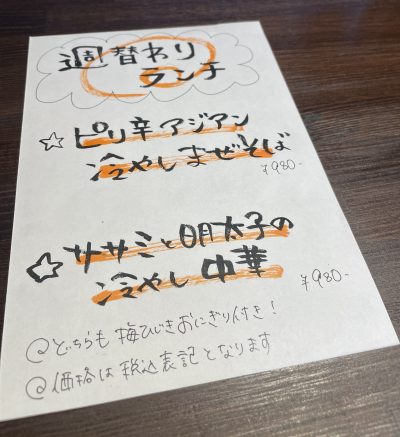 週替わり
ランチ
☆ピリ辛アジアン
冷やしまぜそば
¥980-
☆ササミと明太子の
冷やし中華
¥980-
@どちらも梅ひじきおにぎり付き!
@価格は税込表記となります